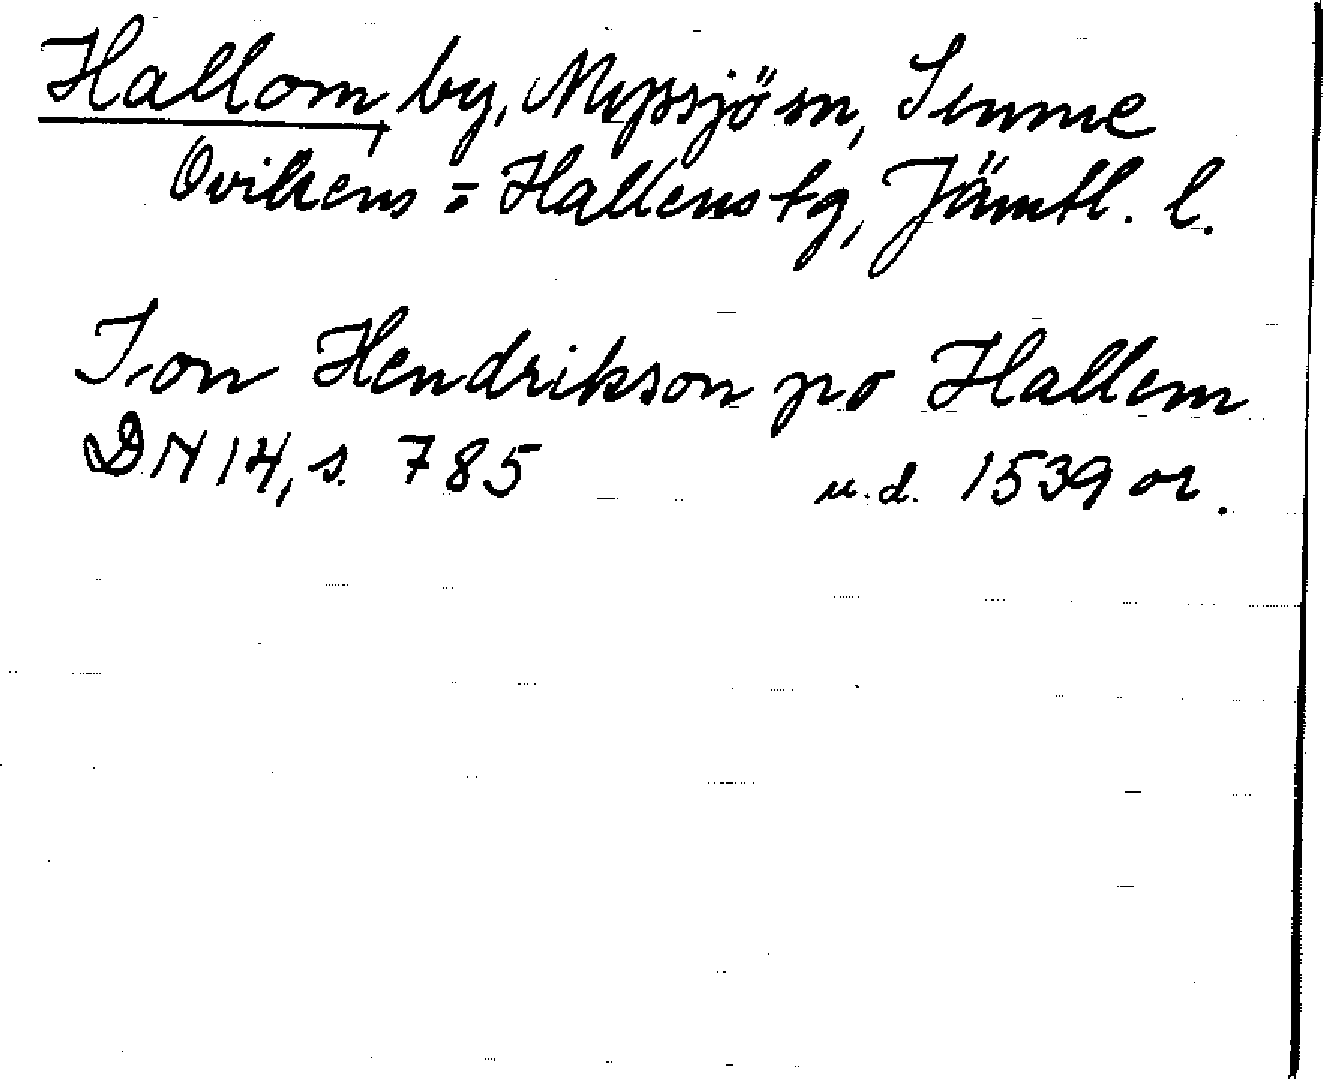 Hallom, by, Myssjö sn, Sunne
Ovikens = Hallens tg, Jämtl. l.
Jon Hendrikson po Hallem
DN 14, s. 785 u.d. 1539 or.